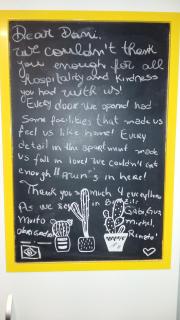 Dear Dani,
we couldn't thank
you enough for all
hospitality and kindness
you had with us!
Every door we opened had
some facilities that made us
feel us like home! Every
detail in the apartment made
us fall in love! We couldn't eat
enough M&M's in here!
Thank you so much 4 everything
As we say in Brazil:
Muito
obrigado
Gabi, Gui
Michel,
Renato!